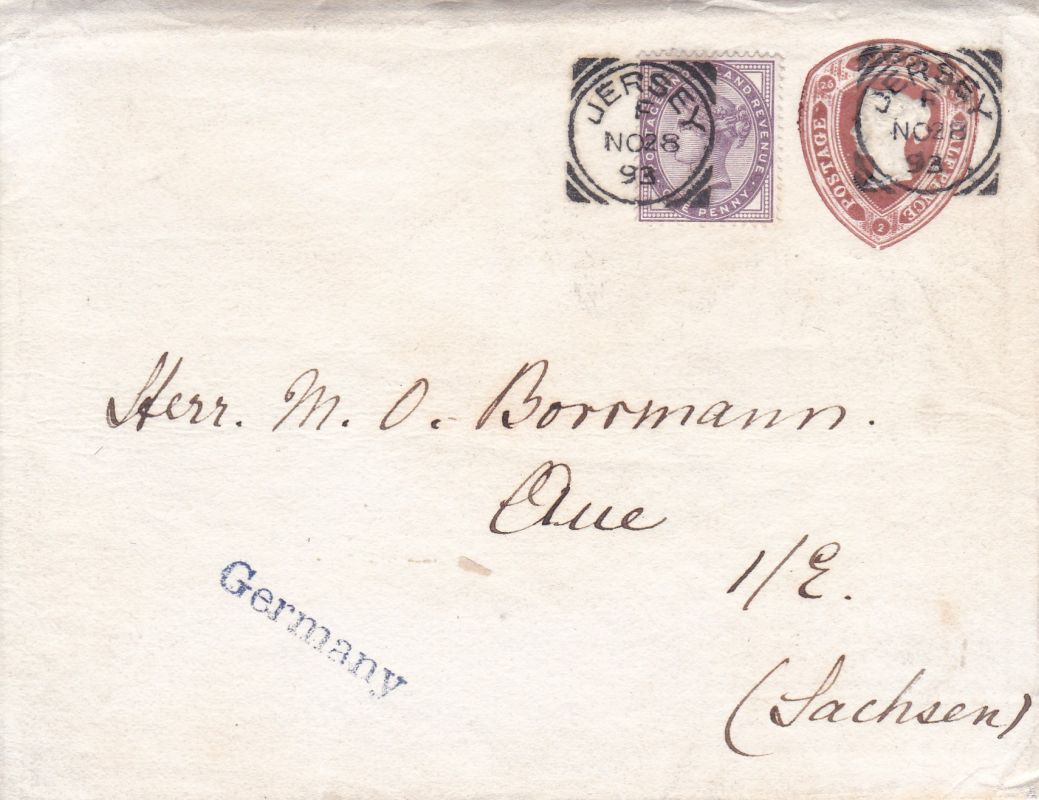 JERSEY
F
NO 28
93
POSTAGE AND REVENUE
ONE PENNY
JERSEY
F
NO 28
93
POSTAGE
HALFPENCE
26
2
Herr. M. O. Borrmann.
Aue
1/E.
(Sachsen)
Germany